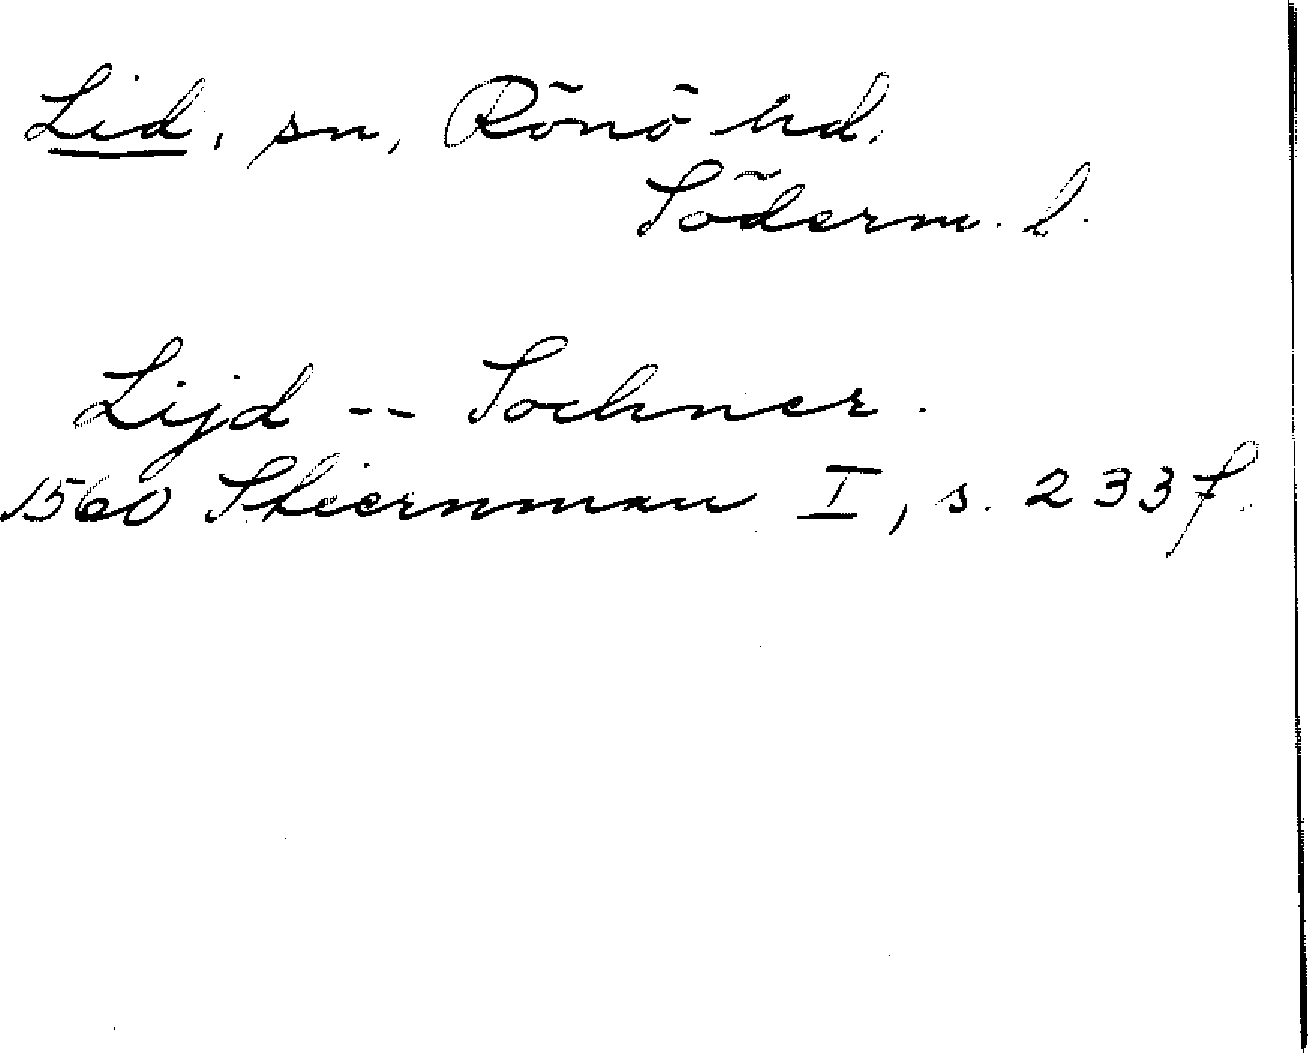 Lid, sn, Rönö hd.
Söderm. l.
Lijd -- Sochner.
1560 Stiernman I, s. 233 f.